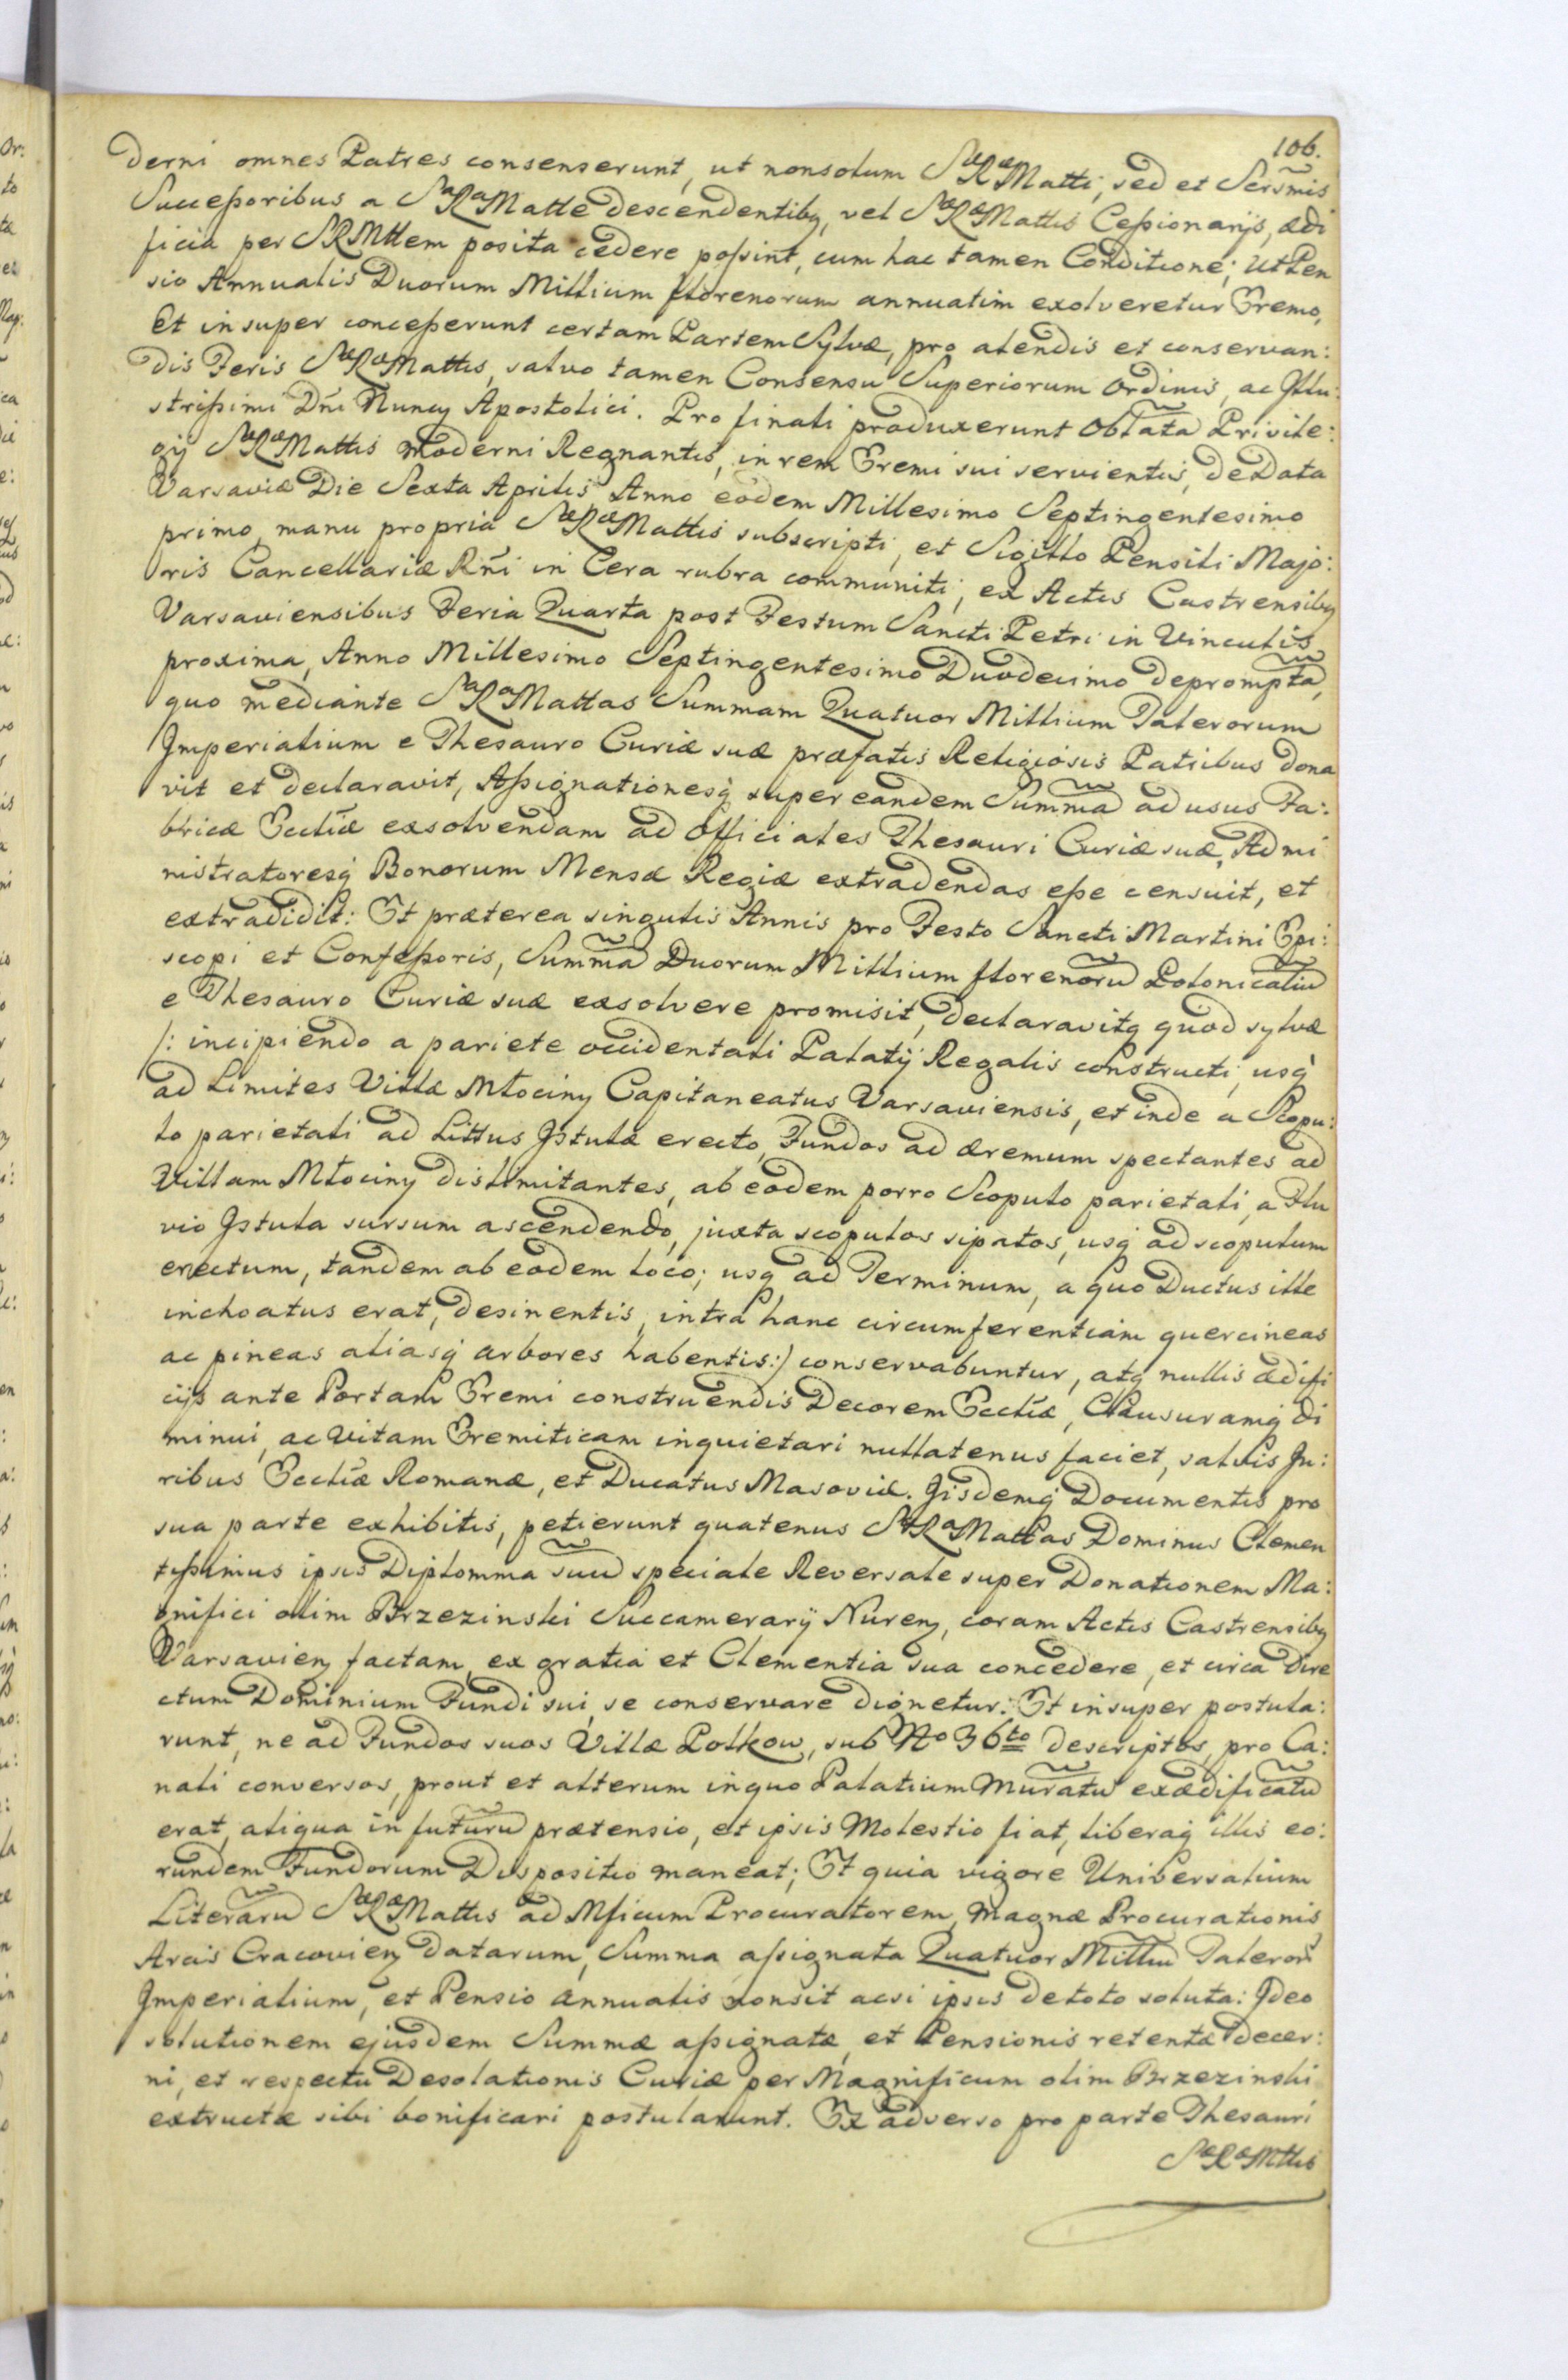 106.
derni omnes Patres consenserunt, ut nonsolum SæRæMatti, sed et Sersmis
Successoribus a SaRaMatte descendentibq, vel SæRæMattis Cessionarijs, ædi
ficia per SRMttem posita cedere possint, cum hac tamen Conditione; Ut Pen
sio Annualis Duorum Millium florenorum annuatim exolveretur Eremo,
Et insuper concesserunt certam Partem Sylvæ, pro alendis et conservan:
dis Feris SæRæMattis, salvo tamen Consensu Superiorum Ordinis, ac Illu:
strissimi Dñi Nuncy Apostolici. Pro finali produxerunt Oblata Privile:
gij SæRæMattis moderni Regnantis, in rem Eremi sui servientis, de Data
Varsaviæ Die Sexta Aprilis Anno eodem Millesimo Septingentesimo
primo, manu propria SæRæMattis subscripti, et Sigillo Pensili Majo:
ris Cancellariæ Rñi in Cera rubra communiti, ex Actis Castrensibq
Varsaviensibus Feria Quarta post Festum Sancti Petri in Vinculis
proxima, Anno Millesimo Septingentesimo Duodecimo deprompta,
quo mediante SaRaMattas Summam Quatuor Millium Talerorum
Imperialium e Thesauro Curiæ suæ præfatis Religiosis Patribus dona
vit et declaravit, Assignationesq super eandem Summa ad usus Fa:
bricæ Eccliæ exsolvendam ad Officiales Thesauri Curiæ suæ, Admi
nistratoresq Bonorum Mensæ Regiæ extradendas esse censuit, et
extradidit: Et præterea singulis Annis pro Festo Sancti Martini Epi:
scopi et Confessoris, Summa Duorum Millium florenoru Polonicaliu
e Thesauro Curiæ suæ exsolvere promisit, declaravitq quod sylvæ
/: incipiendo a pariete occidentali Palatij Regalis constructi, usq
ad Limites Villæ Młociny Capitaneatus Varsaviensis, et inde a Scopu:
lo parietali ad Littus Istulæ erecto, Fundos ad æremum spectantes ad
Villam Młociny dislimitantes, ab eodem porro Scopulo parietali, a Flu
vio Istula sursum ascendendo, juxta scopulos sipatos, usq ad scopulum
erectum, tandem ab eodem loco; usq ad Terminum, a quo Ductus ille
inchoatus erat, desinentis, intra hanc circumferentiam quercineas
ac pineas aliasq arbores habentis:) conservabuntur, atq nullis ædifi
cijs ante Portam Eremi construendis Decorem Eccliæ, Clausuramq di
minui, ac Vitam Eremiticam inquietari nullatenus faciet, salvis Ju:
ribus Eccliæ Romanæ, et Ducatus Masoviæ. Jisdemq Documentis pro
sua parte exhibitis, petierunt quatenus SaRaMattas Dominus Clemen
tissimus ipsis Diplomma suu speciale Reversale super Donationem Ma:
gnifici olim Brzezinski Succamerarij Nureñ, coram Actis Castrensibq
Varsavieñ factam, ex gratia et Clementia sua concedere, et circa Dire
ctum Dominium Fundi sui, se conservare dignetur: Et insuper postula:
runt, ne ad Fundos suos Villæ Polkow, sub No 36to descriptos, pro Ca:
nali conversos, prout et alterum in quo Palatium Muratu exædificatu
erat, aliqua in futuru prætensio, et ipsis Molestio fiat, liberaq illis eo:
rundem Fundorum Dispositio maneat; Et quia vigore Universalium
Literaru SæRæMattis ad Mficum Procuratorem Magnæ Procurationis
Arcis Cracovieñ datarum, Summa assignata Quatuor Milliu Taleror
Imperialium, et Pensio annualis nonsit acsi ipsis de toto soluta: Ideo
solutionem ejusdem Summæ assignatæ, et Pensionis retentæ decer:
ni, et respectu Desolationis Curiæ per Magnificum olim Brzezinski
extructæ sibi bonificari postularunt. Ex adverso pro parte Thesauri
SæRæMttis